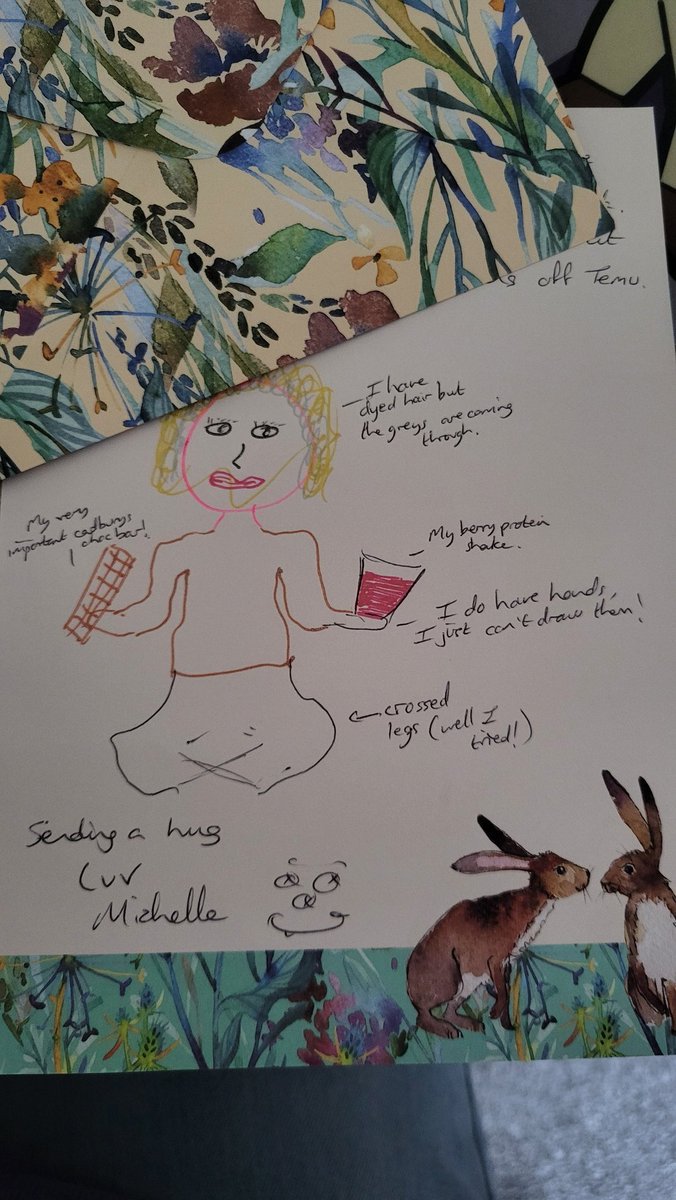 s off Temu.
I have
dyed hair but
the greys are coming
through.
My very
important cadburys
choc bar!
My berry protein
shake.
I do have hands,
I just can't draw them!
crossed
legs (well I
tried!)
Sending a hug
Luv
Michelle